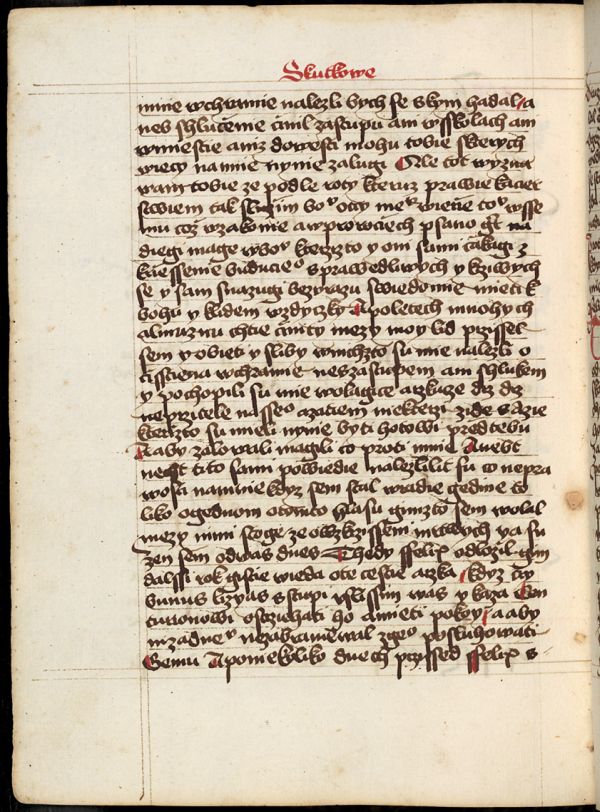 Skutkowe
mnie wchramie nalezli bych se s kym hadal a
neb shlucenie cinil zastupu ani w sskolach ani
w miestie aniz dowesti mohu tobie kterych
wiecy na mie nynie zalugi Ale tot wyzna
wam tobie ze podle roty kteruz prawie kacier
stwiem tak sluzim
mu coz w zakonie a w prorociech psano gt na
diegi mage w kterezto y oni sami cakagi z
krziessenie buducieo sprawedliwych y krziwych
se y sam snazugi bez urazu swiedomie mieti k
bohu y k lidem wzdycky A po letech mnohych
almuznu chtie ciniti mezy moy lid przissel
sem y obieti y sliby w nichzto su mie nalezli o
cisstiena w chramie ne s zastupem ani s hlukem
y pochopili su mie wolagice a rzkuce drz drz
neprzitele nasseo a zatiem niekterzi zide z Azie
kterzto su mieli nynie byti hotowi przed tebu
a aby zalowali magili co proti mnie A neb
necht tito sami powiedie nalezlilit su co nepra
wosti na mnie kdyz sem stal w radie gedine to
liko o gednom otomto hlasu gimzto sem wolal
mezy nimi stoge ze o wzkrziesseni mrtwych ya su
zen sem od was dnes Tehdy ffelix odlozil gim
dalssi rok gistie wieda o te cestie a rzka kdyz try
bunus lizyas sstupi uslissim was y kaza Cen
turionowi ostrziehati ho a mieti pokoy a aby
nizadneo nezabranieowal z geo posluhowati
Gemu A po niekoliko dnech przissed ffelix s